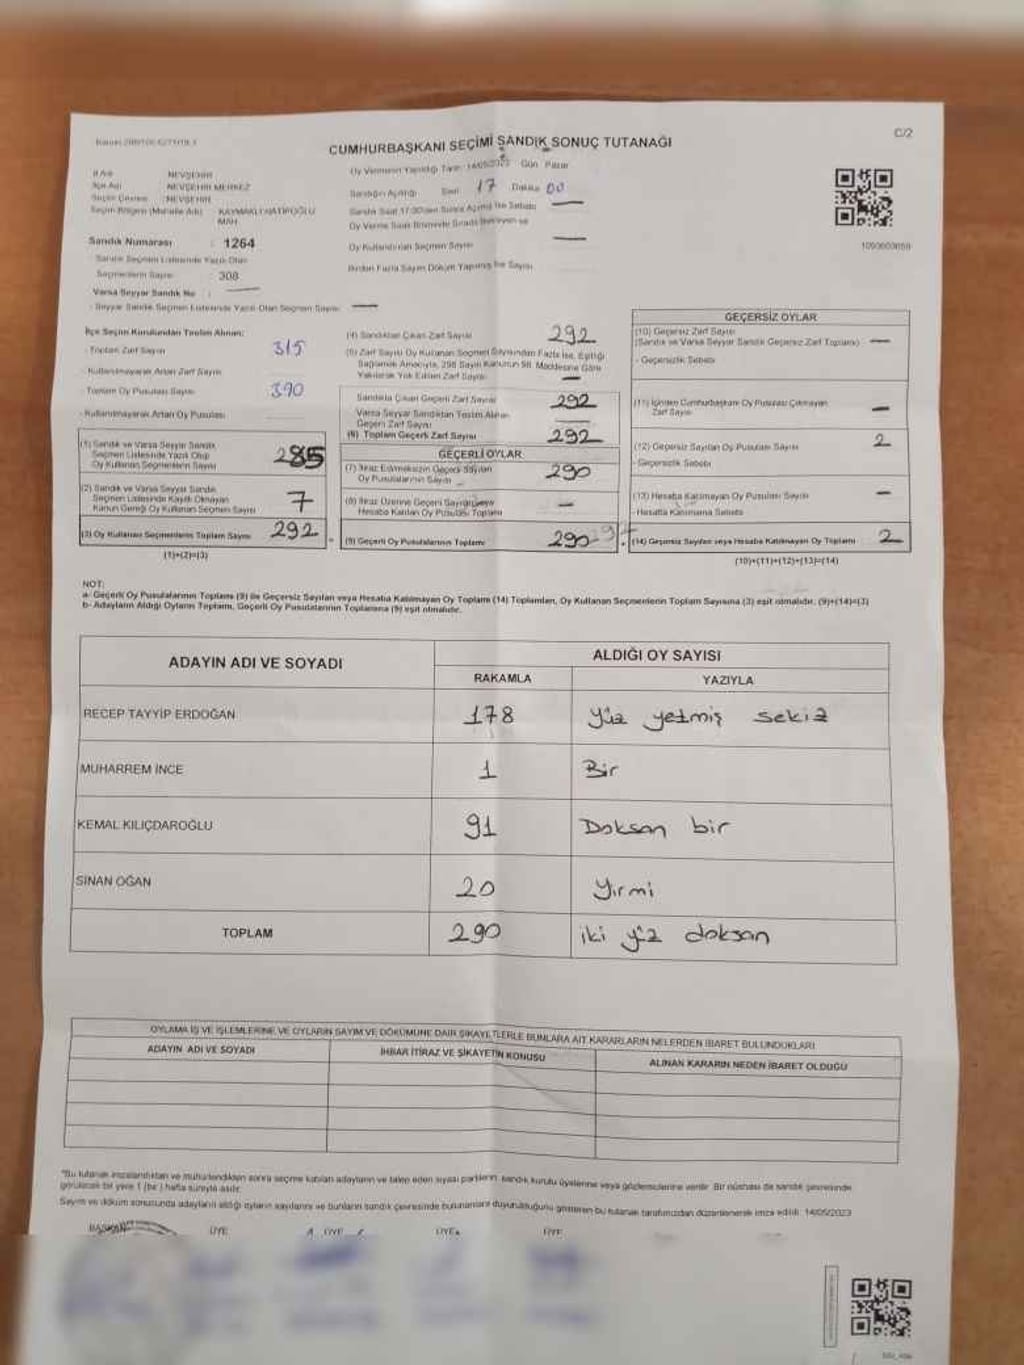 C/2
CUMHURBAŞKANI SEÇİMİ SANDIK SONUÇ TUTANAĞI
İl Adı NEVŞEHİR
İlçe Adı NEVŞEHİR MERKEZ
Seçim Çevresi : NEVŞEHİR
Seçim Bölgesi (Mahalle Adı) : KAYMAKLI HATİPOĞLU
MAH.
Sandık Numarası : 1264
Sandık Seçmen Listesinde Yazılı Olan
Seçmenlerin Sayısı : 308
Varsa Seyyar Sandık No : —
- Seyyar Sandık Seçmen Listesinde Yazılı Olan Seçmen Sayısı —
Oy Vermenin Yapıldığı Tarih 14/05/2023 Gün Pazar
Sandığın Açıldığı Saat 17 Dakika 00
Oy Kullandırılan Seçmen Sayısı —
Birden Fazla Sayım Döküm Yapılmış İse Sayısı
İlçe Seçim Kurulundan Teslim Alınan:
- Toplam Zarf Sayısı 315
- Kullanılmayarak Artan Zarf Sayısı
- Toplam Oy Pusulası Sayısı 390
- Kullanılmayarak Artan Oy Pusulası
(1) Sandık ve Varsa Seyyar Sandık
Seçmen Listesinde Yazılı Olup
Oy Kullanan Seçmenlerin Sayısı 285
(2) Sandık ve Varsa Seyyar Sandık
Seçmen Listesinde Kayıtlı Olmayan
Kanun Gereği Oy Kullanan Seçmen Sayısı 7
(3) Oy Kullanan Seçmenlerin Toplam Sayısı 292
(1)+(2)=(3)
(4) Sandıktan Çıkan Zarf Sayısı 292
(5) Zarf Sayısı Oy Kullanan Seçmen Sayısından Fazla İse, Eşitliği
Sağlamak Amacıyla, 298 Sayılı Kanunun 98. Maddesine Göre
Yakılarak Yok Edilen Zarf Sayısı —
Sandıkta Çıkan Geçerli Zarf Sayısı 292
Varsa Seyyar Sandıktan Teslim Alınan
Geçerli Zarf Sayısı —
(6) Toplam Geçerli Zarf Sayısı 292
GEÇERLİ OYLAR
(7) İtiraz Edilmeksizin Geçerli Sayılan
Oy Pusulalarının Sayısı 290
(8) İtiraz Üzerine Geçerli Sayılarak veya
Hesaba Katılan Oy Pusulası Toplamı —
(9) Geçerli Oy Pusulalarının Toplamı 290
GEÇERSİZ OYLAR
(10) Geçersiz Zarf Sayısı
(Sandık ve Varsa Seyyar Sandık Geçersiz Zarf Toplamı) —
- Geçersizlik Sebebi
(11) İçinden Cumhurbaşkanı Oy Pusulası Çıkmayan
Zarf Sayısı —
(12) Geçersiz Sayılan Oy Pusulası Sayısı 2
- Geçersizlik Sebebi
(13) Hesaba Katılmayan Oy Pusulası Sayısı —
- Hesaba Katılmama Sebebi
(14) Geçersiz Sayılan veya Hesaba Katılmayan Oy Toplamı 2
(10)+(11)+(12)+(13)=(14)
NOT:
a- Geçerli Oy Pusulalarının Toplamı (9) ile Geçersiz Sayılan veya Hesaba Katılmayan Oy Toplamı (14) Toplamları, Oy Kullanan Seçmenlerin Toplam Sayısına (3) eşit olmalıdır. (9)+(14)=(3)
b- Adayların Aldığı Oyların Toplamı, Geçerli Oy Pusulalarının Toplamına (9) eşit olmalıdır.
ADAYIN ADI VE SOYADI ALDIĞI OY SAYISI
RAKAMLA YAZIYLA
RECEP TAYYİP ERDOĞAN 178 yüz yetmiş sekiz
MUHARREM İNCE 1 Bir
KEMAL KILIÇDAROĞLU 91 Doksan bir
SİNAN OĞAN 20 Yirmi
TOPLAM 290 iki yüz doksan
OYLAMA İŞ VE İŞLEMLERİNE VE OYLARIN SAYIM VE DÖKÜMÜNE DAİR ŞİKAYETLERLE BUNLARA AİT KARARLARIN NELERDEN İBARET BULUNDUKLARI
ADAYIN ADI VE SOYADI İHBAR İTİRAZ VE ŞİKAYETİN KONUSU ALINAN KARARIN NEDEN İBARET OLDUĞU
*Bu tutanak imzalandıktan ve mühürlendikten sonra seçime katılan adayların ve talep eden siyasi partilerin sandık kurulu üyelerine veya gözlemcilerine verilir. Bir nüshası da sandık çevresinde
görülecek bir yere 1 (bir) hafta süreyle asılır.
Sayım ve döküm sonucunda adayların aldığı oyların sayılarını ve bunların sandık çevresinde bulunanlara duyurulduğunu gösteren bu tutanak tarafımızdan düzenlenerek imza edildi. 14/05/2023
BAŞKAN ÜYE ÜYE ÜYE ÜYE